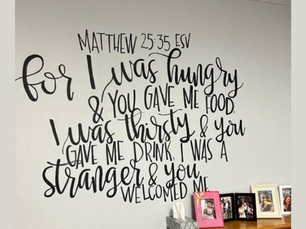 MATTHEW 25:35 ESV
for I was hungry
& YOU GAVE ME FOOD,
I was thirsty & you
GAVE ME DRINK, I WAS A
stranger & you
WELCOMED ME